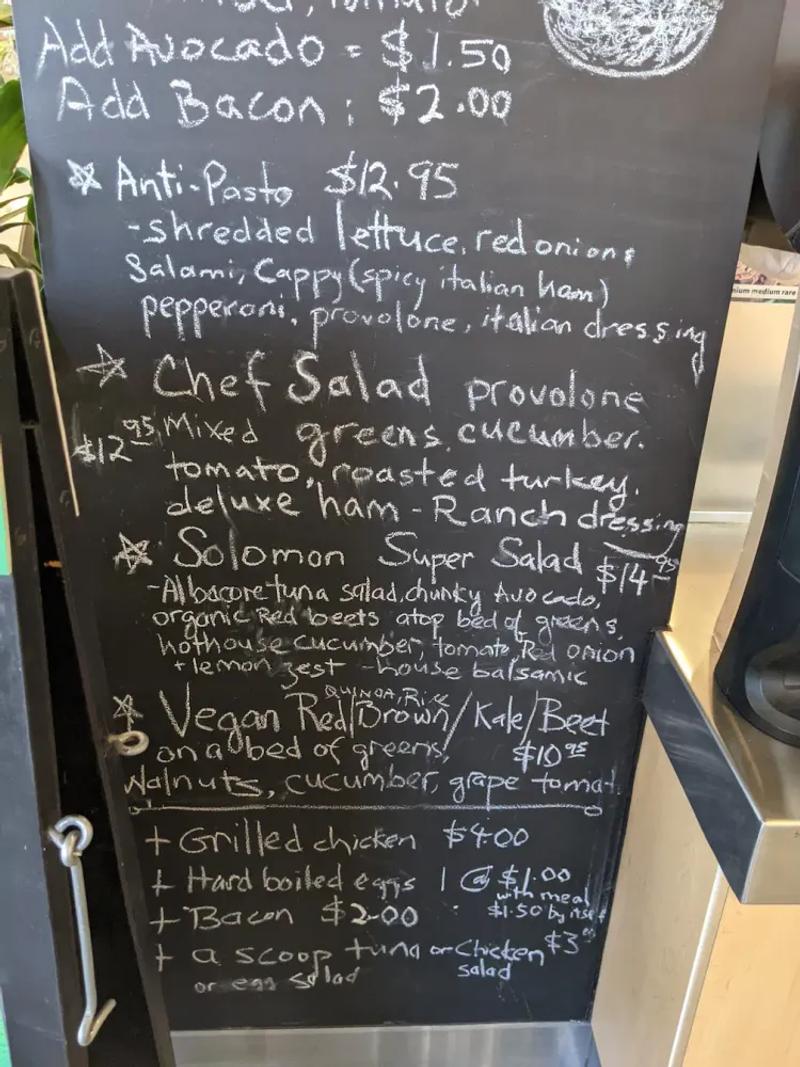 Add Avocado = $1.50
Add Bacon : $2.00
☆ Anti-Pasto $12.95
-shredded lettuce, red onions
Salami, Cappy (spicy italian ham)
pepperoni, provolone, italian dressing
☆ Chef Salad provolone
$12.95 Mixed greens, cucumber.
tomato, roasted turkey.
deluxe ham - Ranch dressing
☆ Solomon Super Salad $14.95
-Albacore tuna salad, chunky Avocado,
organic Red beets atop bed of greens,
hothouse cucumber, tomato, Red onion
+ lemon zest - house balsamic
QUINOA, Rice
☆ Vegan Red/Brown/Kale/Beet
on a bed of greens, $10.95
Walnuts, cucumber, grape tomat
+ Grilled chicken $4.00
+ Hard boiled eggs 1 @ $1.00
with meal
+ Bacon $2.00 $1.50 by itself
+ a scoop tuna or Chicken $3
salad
or egg salad
nium medium rare